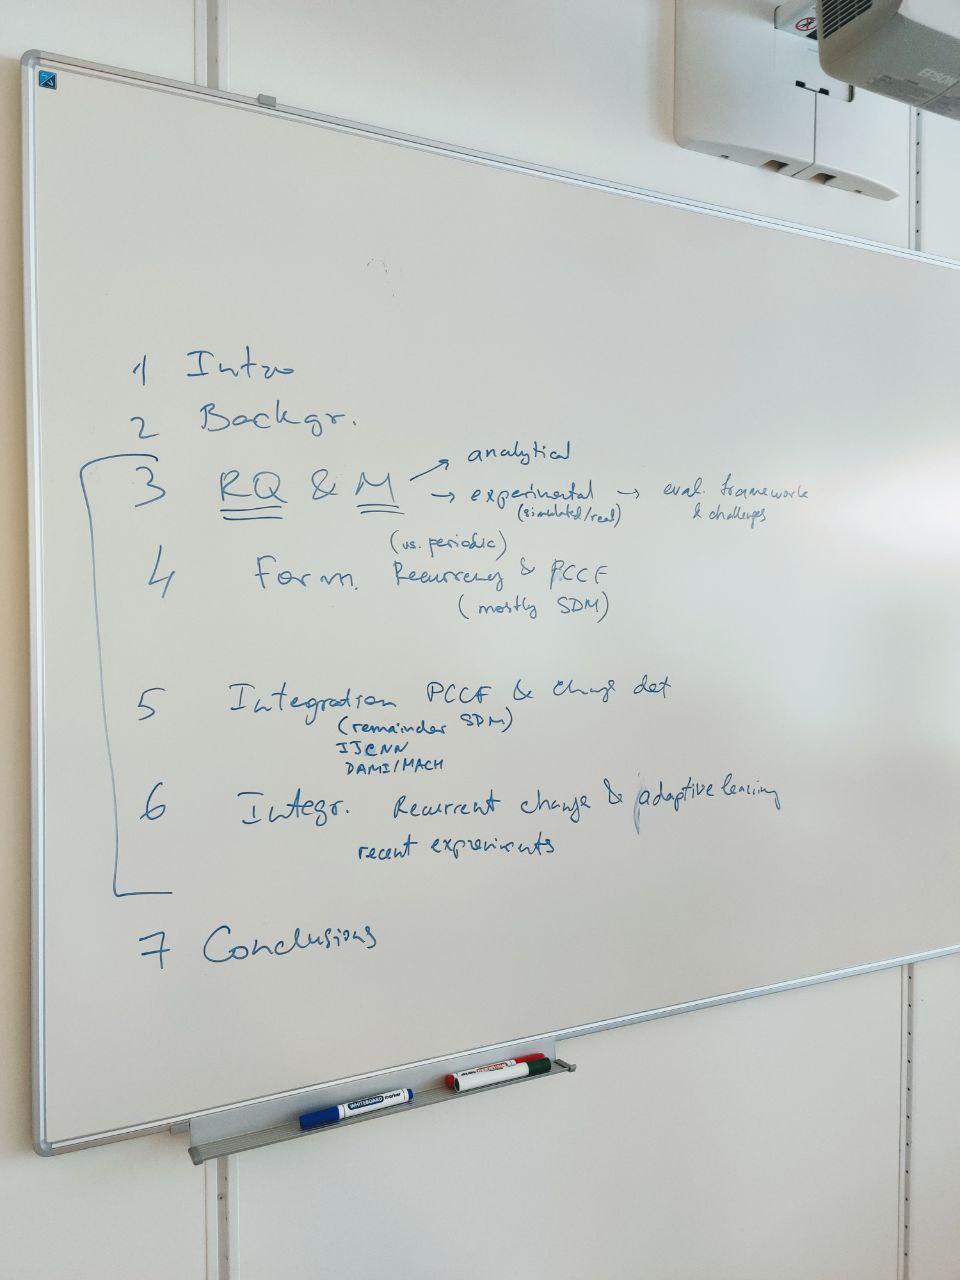 EPSON
1 Intro
2 Backgr.
3 RQ & M → analytical
→ experimental → eval. framework
(simulated/real) & challenges
(vs. periodic)
4 Form. Recurrency & PCCF
(mostly SDM)
5 Integration PCCF & change det
(remainder SDM)
IJCNN
DAMI/MACH
6 Integr. Recurrent change & adaptive learning
recent experiments
7 Conclusions
WHITEBOARD marker